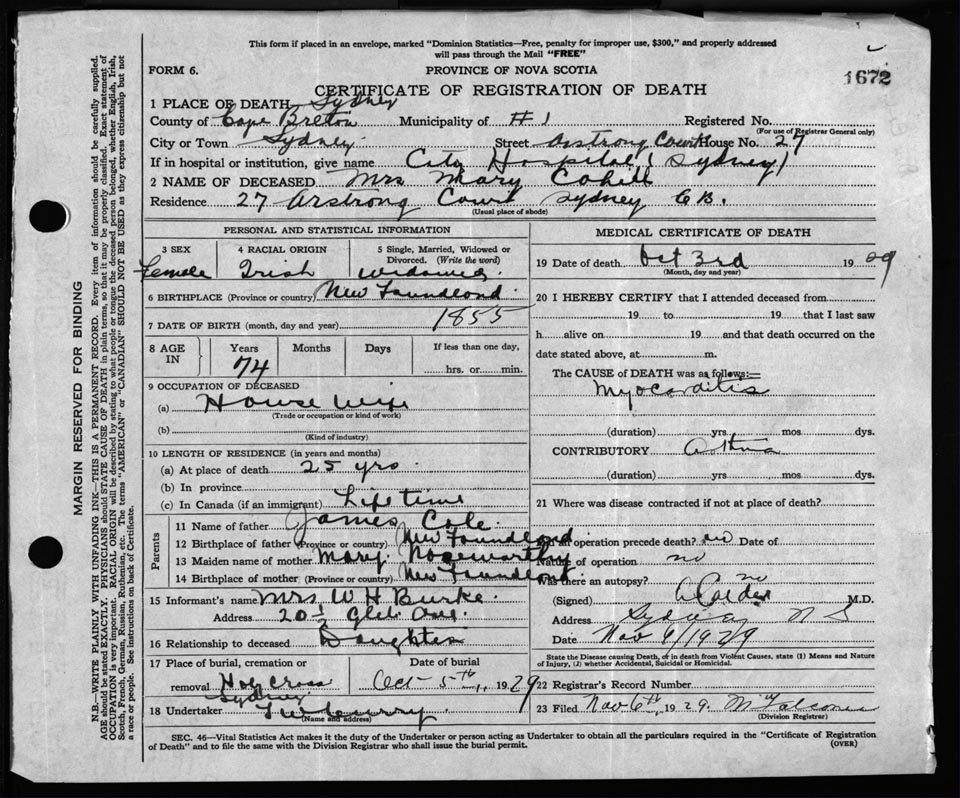 This form if placed in an envelope, marked "Dominion Statistics—Free, penalty for improper use, $300," and properly addressed
will pass through the Mail "FREE"
FORM 6.
PROVINCE OF NOVA SCOTIA
1672
CERTIFICATE OF REGISTRATION OF DEATH
1 PLACE OF DEATH Sydney
County of Cape Breton Municipality of #1 Registered No.
(For use of Registrar General only)
City or Town Sydney Street Arstrong Court House No. 27
If in hospital or institution, give name City Hospital (Sydney)
2 NAME OF DECEASED Mrs Mary Cahill
Residence 27 Arstrong Court Sydney C B.
(Usual place of abode)
PERSONAL AND STATISTICAL INFORMATION
3 SEX 4 RACIAL ORIGIN 5 Single, Married, Widowed or Divorced. (Write the word)
Female Irish Widowed
6 BIRTHPLACE (Province or country) New Foundland
7 DATE OF BIRTH (month, day and year) 1855
8 AGE IN Years Months Days If less than one day,
74 hrs. or min.
9 OCCUPATION OF DECEASED
(a) House Wife
(Trade or occupation or kind of work)
(b)
(Kind of industry)
10 LENGTH OF RESIDENCE (in years and months)
(a) At place of death 25 yrs.
(b) In province
(c) In Canada (if an immigrant) Life time
Parents
11 Name of father James Cole
12 Birthplace of father (Province or country) New Foundland
13 Maiden name of mother Mary Noseworthy
14 Birthplace of mother (Province or country) New Foundland
15 Informant's name Mrs W H Burke
Address 20 1/2 Glebe Ave
16 Relationship to deceased Daughter
17 Place of burial, cremation or Date of burial
removal Holy Cross Oct 5th, 1929
Sydney
18 Undertaker
(Name and address)
MEDICAL CERTIFICATE OF DEATH
19 Date of death Oct 3rd 1929
(Month, day and year)
20 I HEREBY CERTIFY that I attended deceased from
19 to 19 that I last saw
h alive on 19 and that death occurred on the
date stated above, at m.
The CAUSE of DEATH was as follows:—
Myocarditis
(duration) yrs. mos dys.
CONTRIBUTORY Asthma
(duration) yrs. mos. dys.
21 Where was disease contracted if not at place of death?
an operation precede death? no Date of
Nature of operation no
there an autopsy? no
(Signed) M.D.
Address Sydney N S
Date Nov 6/1929
State the Disease causing Death, or in death from Violent Causes, state (1) Means and Nature
of Injury, (2) whether Accidental, Suicidal or Homicidal.
22 Registrar's Record Number
23 Filed Nov 6th, 1929.
(Division Registrar)
SEC. 46—Vital Statistics Act makes it the duty of the Undertaker or person acting as Undertaker to obtain all the particulars required in the "Certificate of Registration
of Death" and to file the same with the Division Registrar who shall issue the burial permit.
(OVER)
MARGIN RESERVED FOR BINDING
N.B.—WRITE PLAINLY WITH UNFADING INK—THIS IS A PERMANENT RECORD. Every item of information should be carefully supplied.
AGE should be stated EXACTLY. PHYSICIANS should STATE CAUSE OF DEATH in plain terms, so that it may be properly classified. Exact statement of
OCCUPATION is very important. RACIAL ORIGIN will be described by stating to what people or tongue the deceased person belonged, whether English, Irish,
Scotch, French, German, Russian, Ruthenian, etc. The terms "AMERICAN" or "CANADIAN" SHOULD NOT BE USED as they express citizenship but not
a race or people. See instructions on back of Certificate.